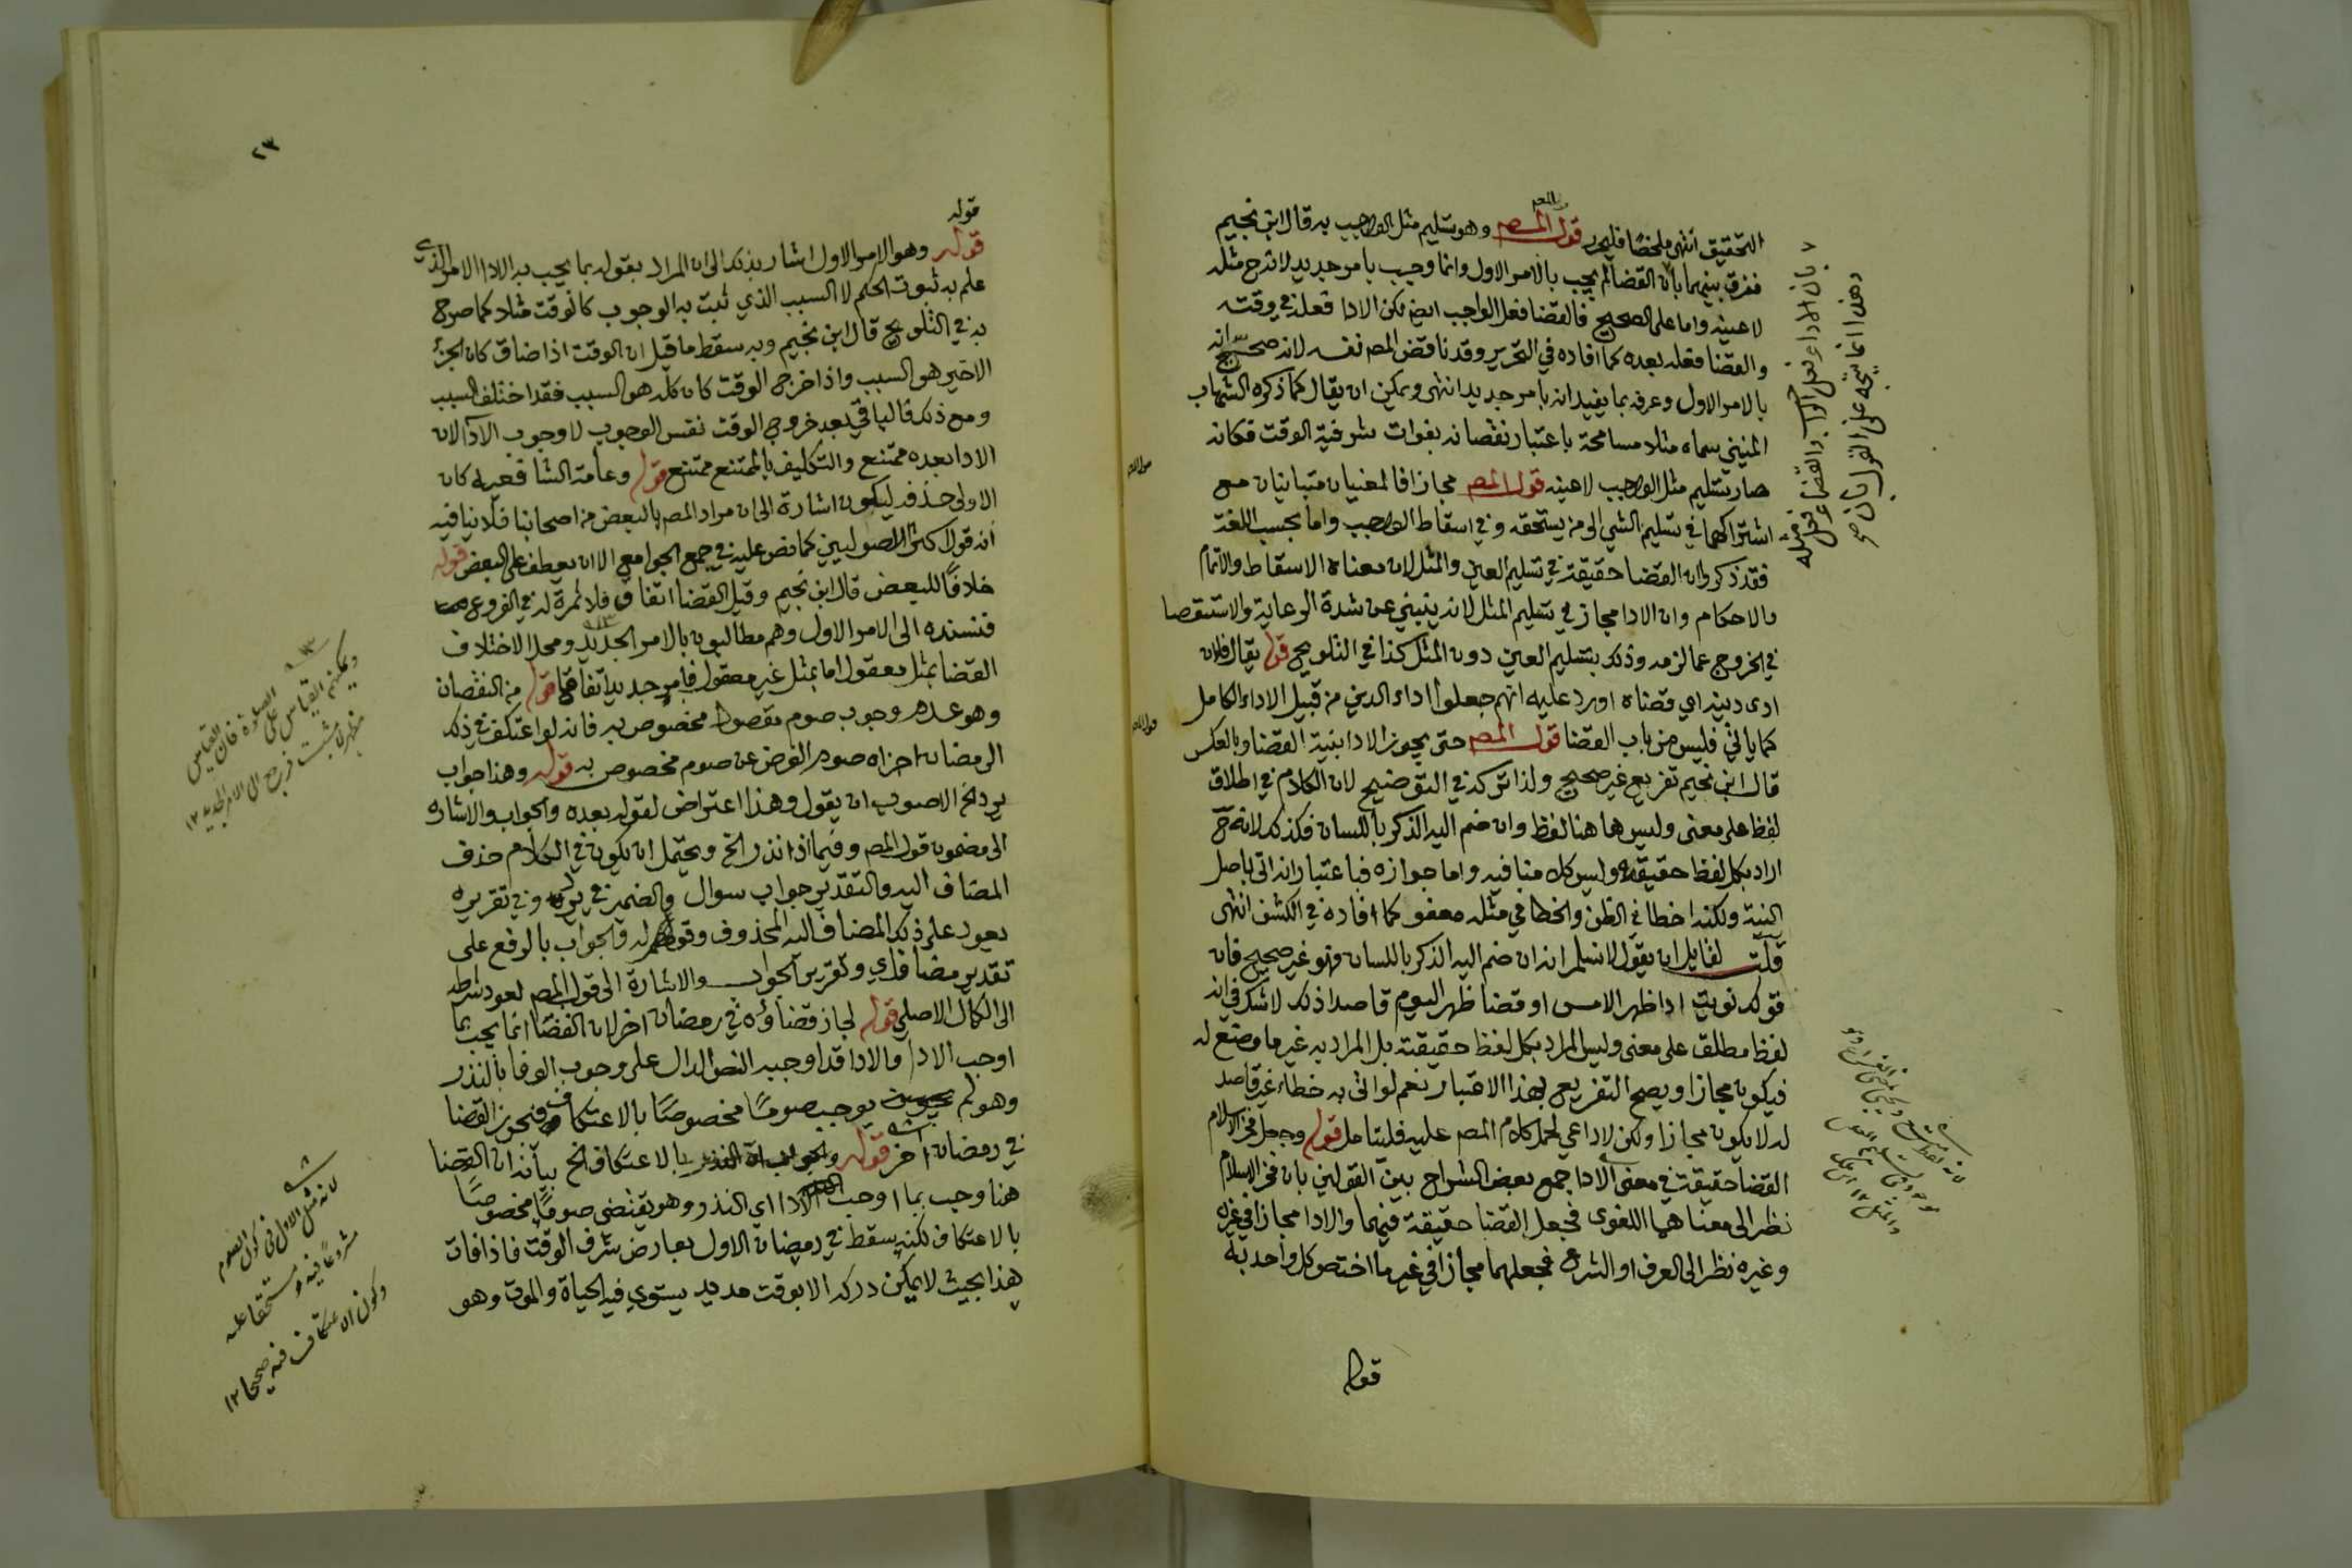 التحقيق انتهى ملخصا فليحرر قول المصر وهو تسليم مثل الواجب به قال ابن نجيم
ففرق بينهما بان القضا لم يجب بالامر الاول وانما وجب بامر جديد لا شرح مثله
لا عينه واما على الصحيح فالقضا فعل الواجب ايضا لكن الادا فعله في وقته
والقضا فعله بعده كما افاده في التحرير وقد ناقض المصر نفسه لانه صحح انه
بالامر الاول وعرفه بما يفيد انه بامر جديد انتهى ويمكن ان يقال كما ذكره الشهاب
المنيني سماه مثلا مسامحة باعتبار نقصانه بفوات شرفية الوقت فكانه
صار تسليم مثل الواجب لا عينه قول المصر مجازا فالمعنيان متباينان مع
اشتراكهما في تسليم الشي الى من يستحقه وفي اسقاط الواجب واما بحسب اللغة
فقد ذكروا ان القضا حقيقة في تسليم العين والمثل لان معناه الاسقاط والاتمام
والاحكام وان الادا مجاز في تسليم المثل لانه ينبني عن شدة الرعاية والاستقصا
في الخروج عما لزمه وذلك بتسليم العين دون المثل كذا في التلويح قوله يقال فلان
ادى دينه اي قضاه اورد عليه انهم جعلوا اداء الدين من قبيل الاداء الكامل
كما ياتي فليس من باب القضا قول المصر حتى يجوز الادا بنية القضا وبالعكس
قال ابن نجيم تفريع غير صحيح ولذا تركه في التوضيح لان الكلام في اطلاق
لفظ على معنى وليس ها هنا لفظ وان ضم اليه الذكر باللسان فكذلك لانه ح
اراد بكل لفظ حقيقته وليس كلامنا فيه واما جوازه فباعتبار انه اتى باصل
النية ولكنه اخطا في الظن والخطا في مثله معفو كما افاده في الكشف انتهى
قلت لقايل ان يقول لا نسلم انه ان ضم اليه الذكر باللسان فهو غير صحيح فان
قولك نويت ادا ظهر الامس او قضا ظهر اليوم قاصدا ذلك لا شك في انه
لفظ مطلق على معنى وليس المراد بكل لفظ حقيقته بل المراد به غير ما وضع له
فيكون مجازا ويصح التفريع بهذا الاعتبار نعم لو اتى به خطاء غير قاصد
له لا يكون مجازا ولكن لا داعي لحمل كلام المصر عليه فليتامل قوله وجعل فخر الاسلام
القضا حقيقة في معنى الادا جمع بعض الشراح بين القولين بان فخر الاسلام
نظر الى معناهما اللغوى فجعل القضا حقيقة فيهما والادا مجازا في غيره
وغيره نظر الى العرف او الشرع فجعلهما مجازا في غير ما اختص كل واحد به
قوله
بان الاداء فعل الواجب والقضاء فعل مثله
وهذا انما يتجه على القول بان
٢٣
قوله
قوله وهو الامر الاول اشار بذلك الى ان المراد بقوله بما يجب به الادا الامر الذي
علم به ثبوت الحكم لا السبب الذي ثبت به الوجوب كالوقت مثلا كما صرح
به في التلويح قال ابن نجيم وبه سقط ما قيل ان الوقت اذا ضاق كان الجزء
الاخير هو السبب واذا خرج الوقت كان كله هو السبب فقد اختلف السبب
ومع ذلك فالباقي بعد خروج الوقت نفس الوجوب لا وجوب الادا لان
الادا بعده ممتنع والتكليف بالممتنع ممتنع قوله وعامة الشافعيه كان
الاولى حذفه ليكون اشارة الى ان مراد المصر بالبعض من اصحابنا فلا ينافيه
انه قول اكثر الاصوليين كما نص عليه في جمع الجوامع الا ان يعطف على البعض قوله
خلافا للبعض قال ابن نجيم وقيل القضا اتفاق فلا ثمرة له في الفروع
فنسنده الى الامر الاول وهم مطالبون بالامر الجديد ومحل الاختلاف
القضا بمثل معقول اما بمثل غير معقول فبامر جديد اتفاقا قوله من النقصان
وهو عدم وجوب صوم مقصود مخصوص به فانه لو اعتكف في ذلك
الرمضان اجزاه صوم الفرض عن صوم مخصوص به قوله وهذا جواب
يرد الخ الاصوب ان يقول وهذا اعتراض لقوله بعده والجواب والاشاره
الى مضمون قول المصر وفيما اذا نذر الخ ويحتمل ان يكون في الكلام حذف
المضاف اليه والتقدير جواب سوال والضمير في يرد وفي تقريره
يعود على ذلك المضاف اليه المحذوف وقوله والجواب بالرفع على
تقدير مضاف اي وتقرير الجواب والاشارة الى قول المصر لعود شرطه
الى الكمال الاصلي قوله لجاز قضاؤه في رمضان اخر لان القضا انما يجب بما
اوجب الادا والادا قد اوجبه النص الدال على وجوب الوفا بالنذر
وهو لم يوجب صوما مخصوصا بالاعتكاف فنجوز القضا
في رمضان اخر قوله بالاعتكاف الخ بيانه ان القضا
هنا وجب بما اوجب الادا اي النذر وهو يقتضي صوما مخصوصا
بالاعتكاف لكنه سقط في رمضان الاول بعارض شرف الوقت فاذا فات
هذا بحيث لا يمكن دركه الا بوقت مديد يستوي فيه الحياة والموت وهو
ويمكنهم القياس على الصلوة فان القياس
مظهر لا مثبت فرجع الى الامر الجديد ١٢
لانه مثل الاول في كون الصوم
مشروعا فيه ومستحقا عليه
وكون الاعتكاف فيه صحيحا ١٢